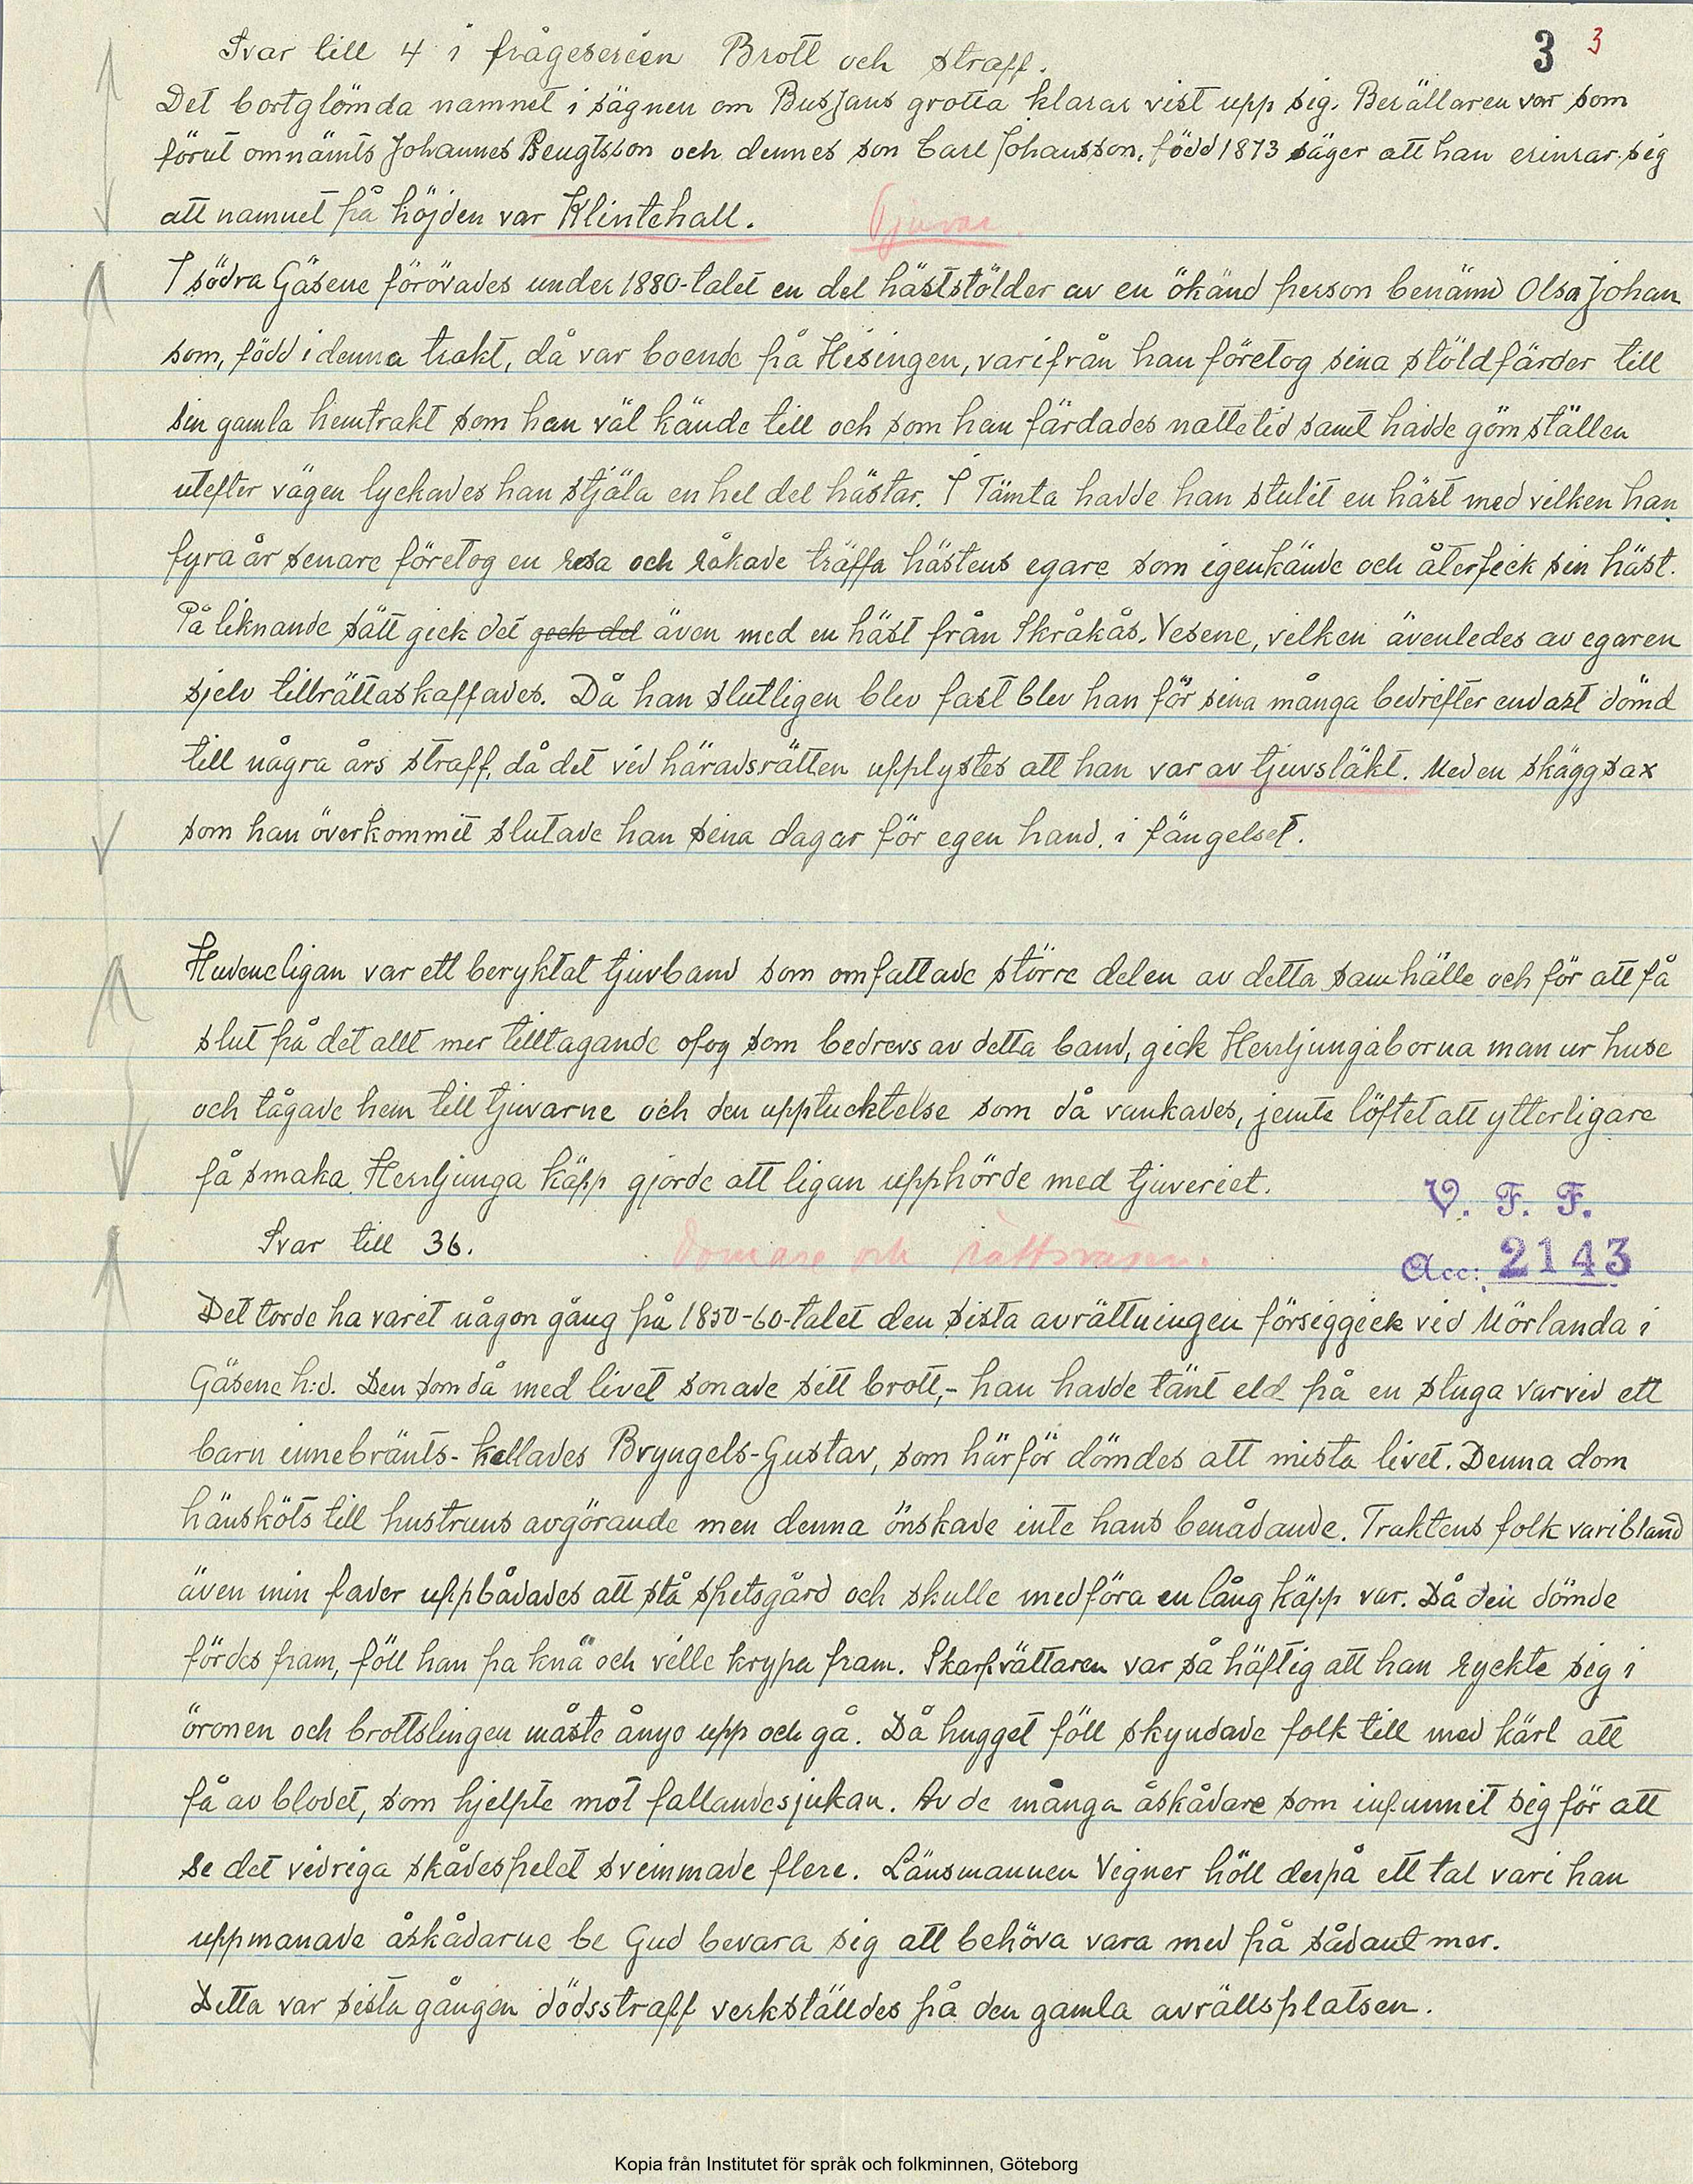 3 3
Svar till 4 i frågeserien Brott och straff.
Det bortglömda namnet i sägnen om BusJans grotta klarar vist upp sig. Berällaren var som
förut omnämts Johannes Bengtsson och dennes son Carl Johansson, född 1873 säger att han erinrar sig
att namnet på höjden var Klintehall.
Tjuvar.
I södra Gäsene förövades under 1880-talet en del häststölder av en ökänd person benämd Olsa Johan
som, född i denna trakt, då var boende på Hisingen, varifrån han företog sina stöldfärder till
sin gamla hemtrakt som han väl kände till och som han färdades nattetid samt hadde gömställen
utefter vägen lyckades han stjäla en hel del hästar. I Tämta hadde han stulit en häst med vilken han
fyra år senare företog en resa och råkade träffa hästens egare som igenkände och återfick sin häst.
På liknande sätt gick det geck del även med en häst från Skråkås, Vesene, vilken ävenledes av egaren
sjelv tillrättaskaffades. Då han slutligen blev fast blev han för sina många bedrifter endast dömd
till några års straff, då det vid häradsrätten upplystes att han var av tjuvsläkt. Med en skäggsax
som han överkommit slutade han sina dagar för egen hand. i fängelset.
Hudeneligan var ett beryktat tjuvband som omfattade större delen av detta samhälle och för att få
slut på det allt mer tilltagande ofog som bedrevs av detta band, gick Herrljungaborna man ur huse
och tågade hem till tjuvarne och den upptucktelse som då vankades, jemte löftet att ytterligare
få smaka Herrljunga käpp gjorde att ligan upphörde med tjuveriet.
V. F. F.
Svar till 36.
Domare och rättsväsen.
Acc: 2143
Det torde ha varit någon gång på 1850-60-talet den sista avrättningen försiggick vid Mörlanda i
Gäsene h:d. Den som då med livet sonade sitt brott,- han hadde tänt eld på en stuga varvid ett
barn innebränts- kallades Bryngels-Gustav, som härför dömdes att mista livet. Denna dom
hänsköts till hustruns avgörande men denna önskade inte hans benådande. Traktens folk varibland
även min fader uppbådades att stå spetsgård och skulle medföra en lång käpp var. Då den dömde
fördes fram, föll han pa knä och ville krypa fram. Skarprättaren var så häftig att han ryckte sig i
öronen och brottslingen måste ånyo upp och gå. Då hugget föll skyndade folk till med kärl att
få av blodet, som hjelpte mot fallandesjukan. Av de många åskådare som infunnit sig för att
se det vidriga skådespelet svimmade flere. Länsmannen Vigner höll derpå ett tal vari han
uppmanade åskådarne be Gud bevara sig att behöva vara med på sådant mer.
Detta var sista gången dödsstraff verkställdes på den gamla avrättsplatsen.
Kopia från Institutet för språk och folkminnen, Göteborg